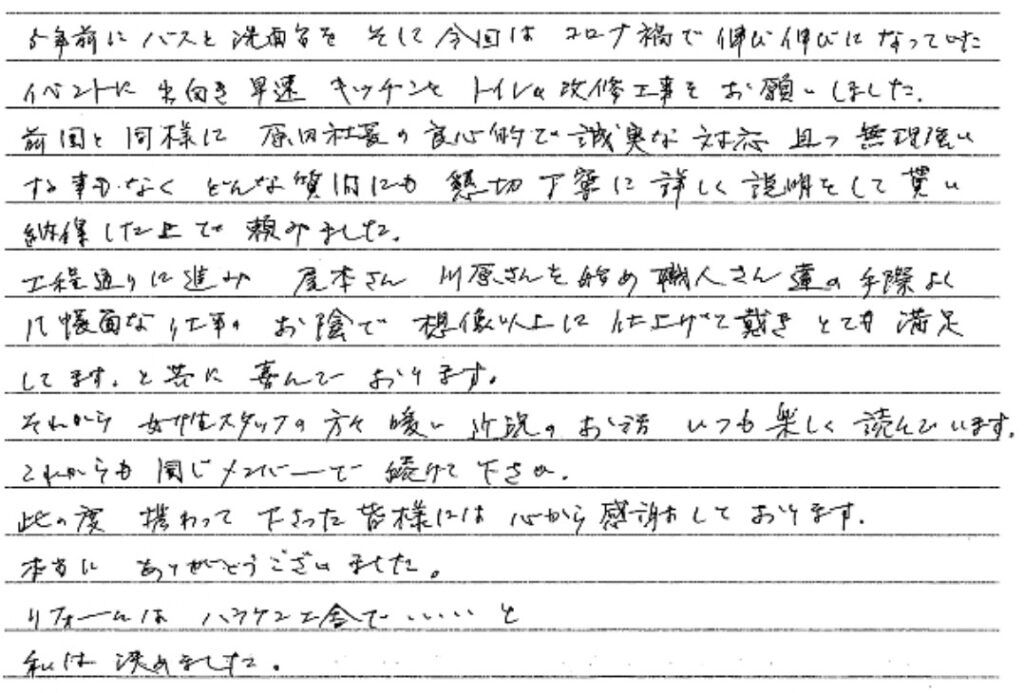 5年前にバスと洗面台を そして今回は コロナ禍で伸び伸びになっていた
イベントに出向き早速 キッチンと トイレの改修工事を お願いしました。
前回と同様に 原田社長の良心的で誠実な対応 且つ無理強い
する事もなく どんな質問にも 懇切丁寧に詳しく説明をして貰い
納得した上で頼みました。
工程通りに進み 尾本さん 川原さんを始め職人さん達の手際よく
几帳面な仕事の お陰で 想像以上に仕上げて戴き とても満足
してます。と共に 喜んで おります。
それから 女性スタッフの方々 暖い 近況のお話 いつも楽しく読んでいます。
これからも 同じメンバーで 続けて下さい。
此の度 携わって 下さった皆様には 心から感謝して おります。
本当に ありがとうございました。
リフォームは ハラケン工舎で‥‥‥と
私は 決めました。